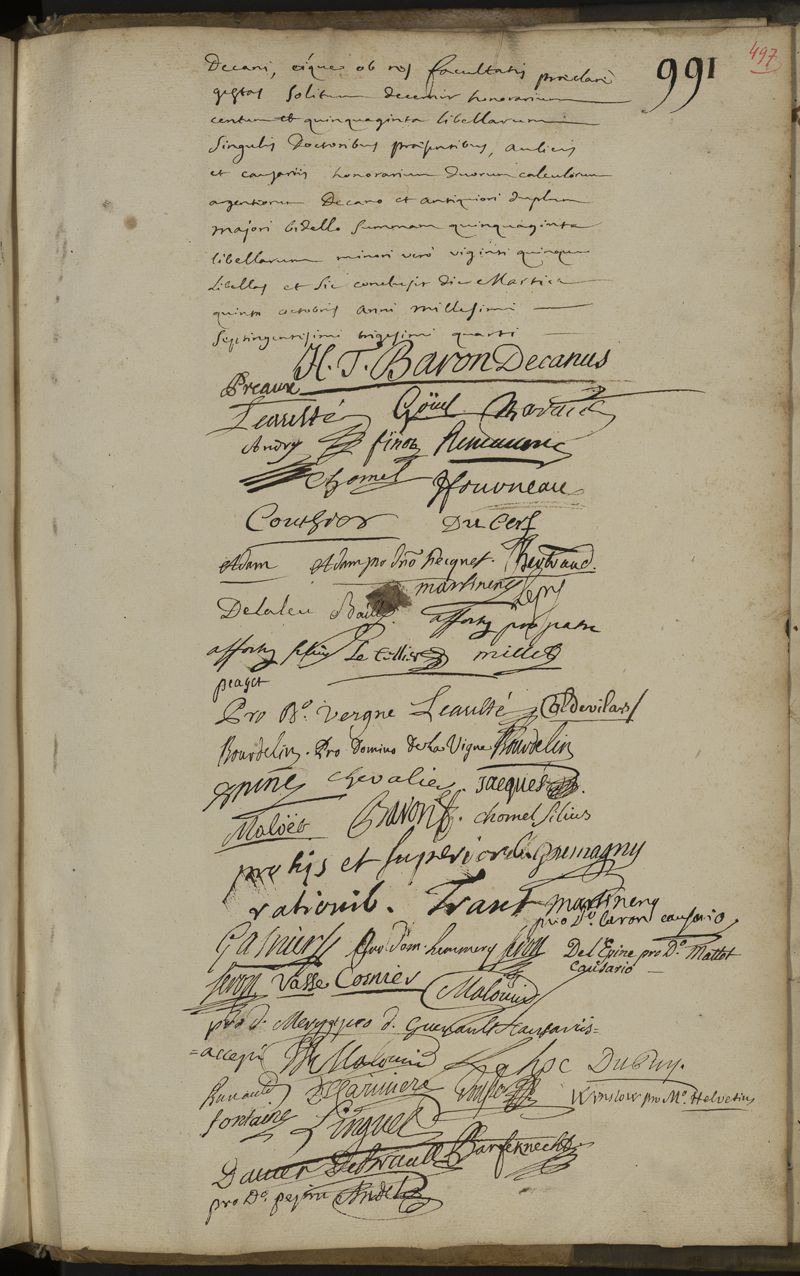 991
497
Decani, eique ob res facultatis præclarè
gestas solitum decernir honorarium
centum et quinquaginta libellarum
singulis Doctoribus præsentibus, aulicis
et causariis honorarium duorum calculorum
argenteorum Decano et antiquiori duplum
majori bidello summam quinquaginta
libellarum minori verò viginti quinque
libellas et sic conclusit die Martis
quinta octobris anni millesimi
septingentesimi trigesimi quarti
H. T. Baron Decanus
Preaux
Leaulté Goüel
Andry finot
Chomel
Couthier Du Cerf
Adam Adam pro dno hecquet. Bertrand.
martinenq Lepy
Delaleu Baille afforty pro patre
afforty filius Le tillier millet
peaget
Pro Do. Vergne Leaulté Coldevilars
Bourdelin. Pro Domino De La Vigne Bourdelin
Chevalier. Jacques
Maloët Baron f. chomel filius
pro his et superiorib.
rationib. martinenq
pro Do. Caron causario
Pro dom. hemmery De L'Epine pro Do. Mattot
causario
Vasse Cosnier Malouin
pro d. Mery et pro d. Guerault causariis
accepi Malouin Dupuy.
Renault Winslow pro Mo. Helvetius
fontaine Linguet
Barfeknecht
pro Do.